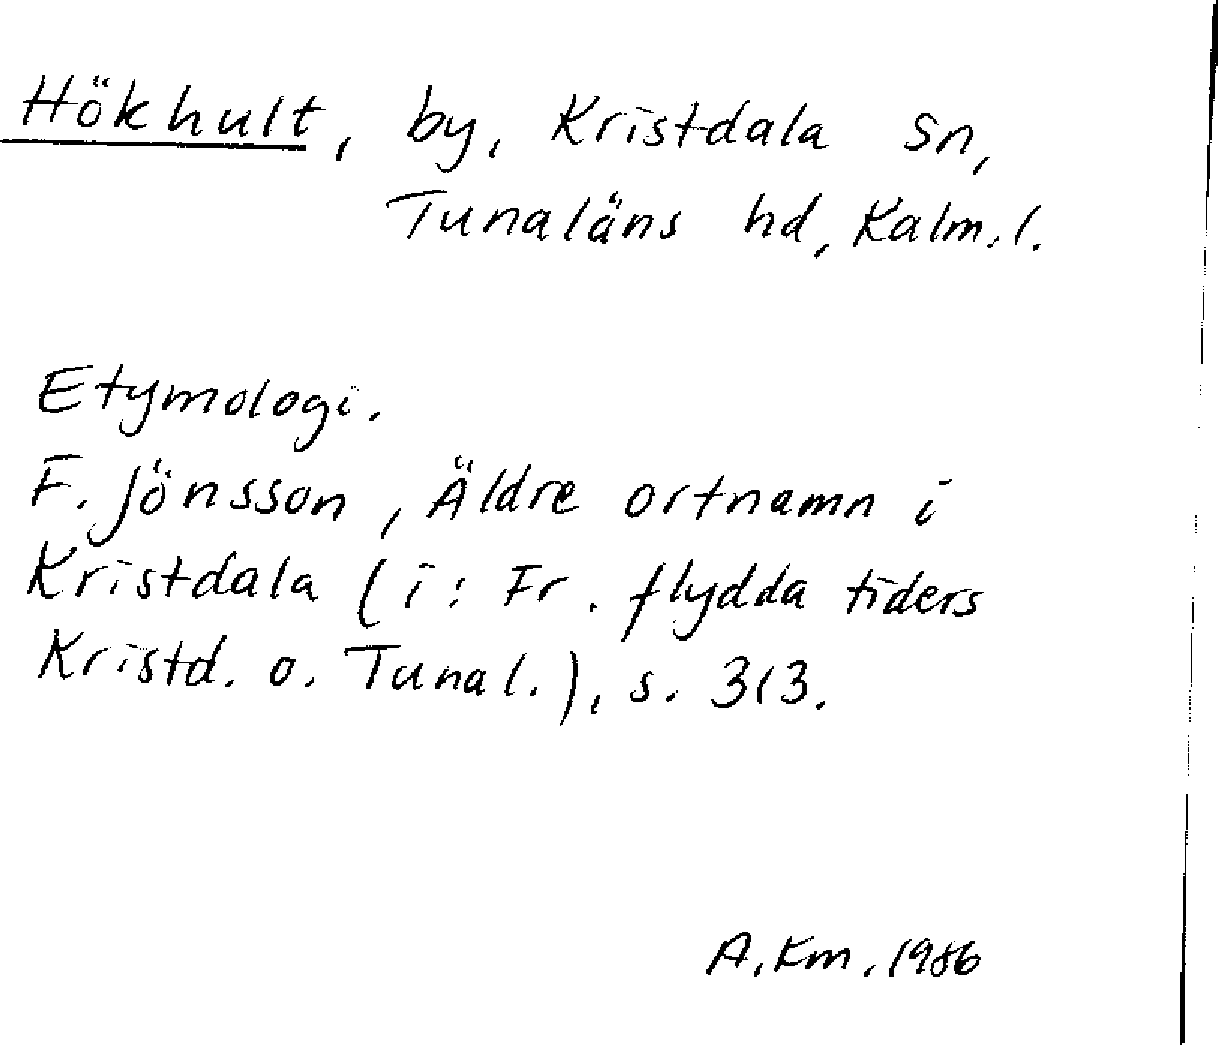 Hökhult, by, Kristdala sn,
Tunaläns hd, Kalm. l.
Etymologi.
F. Jönsson, Äldre ortnamn i
Kristdala (i: Fr. flydda tiders
Kristd. o. Tunal.), s. 313.
A. Km. 1986